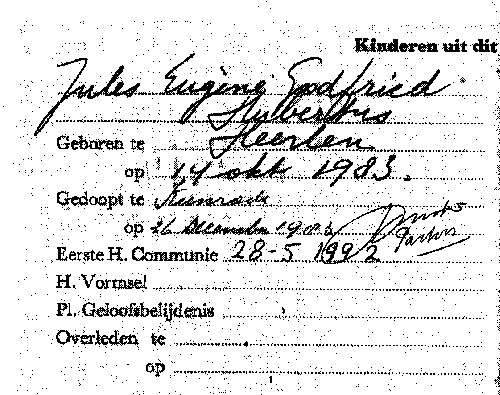 Kinderen uit dit
Jules Eugène Godfried
Hubertus
Geboren te Heerlen
op 14 okt 1983.
Gedoopt te Kunrade
op 26 December 1983
Pastor
Eerste H. Communie 28-5 1992
H. Vormsel
Pl. Geloofsbelijdenis
Overleden te
op